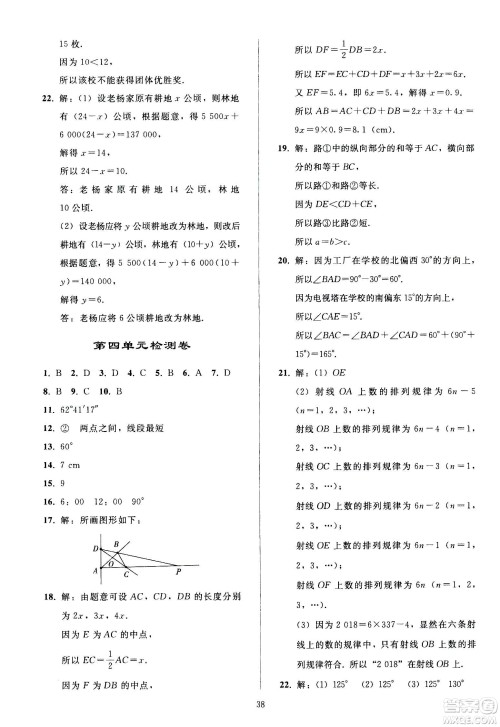 15 枚.
因为 10<12,
所以该校不能获得团体优胜奖.
22. 解：(1) 设老杨家原有耕地 x 公顷，则林地
有 (24-x) 公顷，根据题意，得 5 500x+
6 000(24-x)=137 000，
解得 x=14，
答：老杨家原有耕地 14 公顷，林地
10 公顷.
(2) 设老杨应将 y 公顷耕地改为林地，则改后
耕地有 (14-y) 公顷，林地有 (10+y) 公顷，
根据题意，得 5 500(14-y)+6 000(10+
y)=140 000，
解得 y=6.
答：老杨应将 6 公顷耕地改为林地.
第四单元检测卷
1. B 2. D 3. C 4. A 5. B 6. C 7. B
8. B 9. D 10. A
11. 62°41′17″
12. ② 两点之间，线段最短
13. 60°
14. 7 cm
15. 9
16. 6：00 12：00 90°
17. 解：所画图形如下：
D B
O
A C P
18. 解：由题意可设 AC，CD，DB 的长度分别
为 2x，3x，4x.
因为 E 为 AC 的中点，
所以 EC=1/2AC=x.
因为 F 为 DB 的中点，
所以 DF=1/2DB=2x.
所以 EF=EC+CD+DF=x+3x+2x=6x.
又 EF=5.4，即 6x=5.4，所以 x=0.9.
所以 AB=AC+CD+DB=2x+3x+4x=
9x=9×0.9=8.1(cm)
19. 解：路①中的纵向部分的和等于 AC，横向部
分的和等于 BC，
所以路①与路②相等.
因为 DE<CD+CE，
所以路③比路②短.
所以 a=b>c.
20. 解：因为工厂在学校的北偏西 30°的方向上，
所以∠BAD=90°-30°=60°.
因为电视塔在学校的南偏东 15°的方向上，
所以∠CAE=15°.
所以∠BAC=60°+90°+15°=165°.
21. 解：(1) OE
(2) 射线 OA 上数的排列规律为 6n-5
(n=1，2，3，…)；
射线 OB 上数的排列规律为 6n-4 (n=1，
2，3，…)；
射线 OC 上数的排列规律为 6n-3 (n=1，
2，3，…)；
射线 OD 上数的排列规律为 6n-2 (n=1，
2，3，…)；
射线 OE 上数的排列规律为 6n-1 (n=1，
2，3，…)；
射线 OF 上数的排列规律为 6n (n=1，2，
3，…).
(3) 因为 2 018=6×337-4，且在六条射
线上的数的规律中，只有射线 OB 上的数的排
列规律符合. 所以“2 018”在射线 OB 上.
22. 解：(1) 125° (2) 125° (3) 125°
38